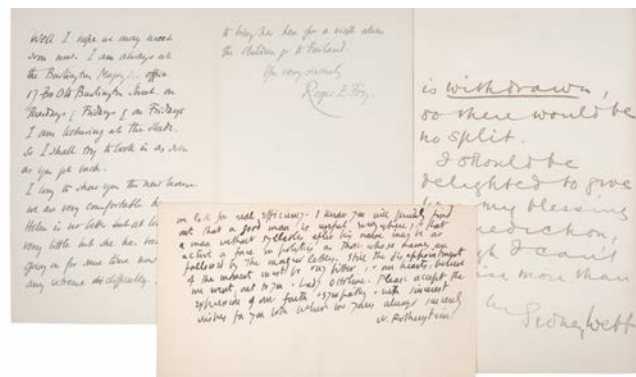 Well I hope we may meet
soon now. I am always at
the Burlington Magazine office
17 Old Burlington Street on
Thursdays & Fridays & on Fridays
I am lecturing at the Slade.
So I shall try to look in as soon
as you get back.
I long to show you the new house
we are very comfortable
Helen is no better but at
very little but she has been
going on for some time now
any extreme difficulty.
to bring her here for a visit when
the children go to
Yrs very sincerely
Roger E. Fry.
is withdrawn,
so there would be
no split.
I should be
delighted to give
my blessing
I can't
more than
Sidney Webb
we look for real efficiency. I know you will find
out that a good man is useful everywhere, & that
a man without syllables after his name may be as
active a force in politics as those whose names are
followed by the magic letters. Still the disappointment
of the moment must be very bitter, & our hearts, believe
me went out to you & Lady Ottoline. Please accept the
expression of our faith & sympathy & with sincerest
wishes for you both believe me yours always sincerely
W. Rothenstein